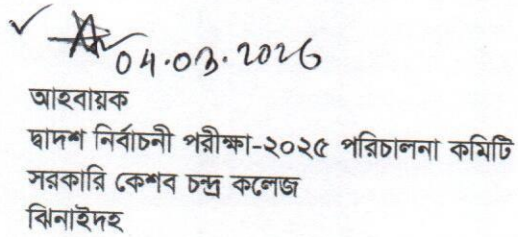 04.03.2026
আহবায়ক
দ্বাদশ নির্বাচনী পরীক্ষা-২০২৫ পরিচালনা কমিটি
সরকারি কেশব চন্দ্র কলেজ
ঝিনাইদহ